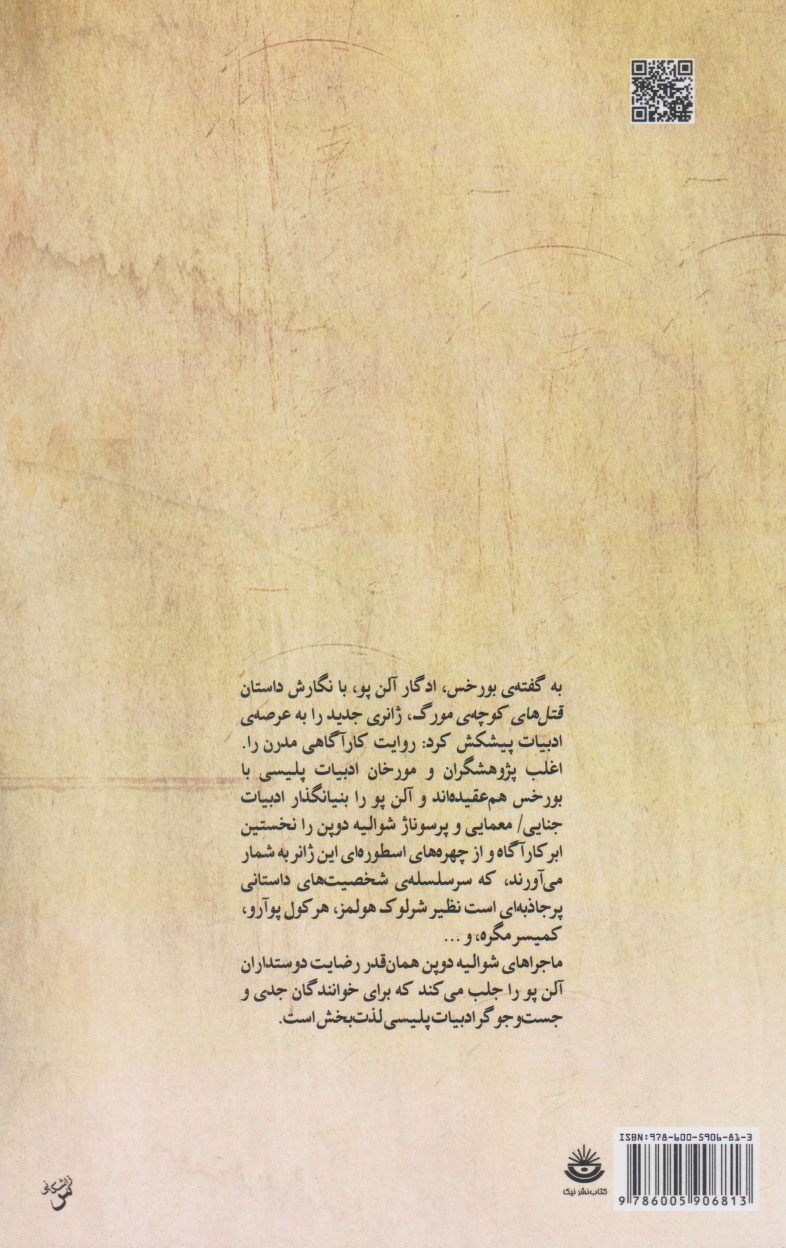 به گفته‌ی بورخس، ادگار آلن پو، با نگارش داستان
قتل‌های کوچه‌ی مورگ، ژانری جدید را به عرصه‌ی
ادبیات پیشکش کرد: روایت کارآگاهی مدرن را.
اغلب پژوهشگران و مورخان ادبیات پلیسی با
بورخس هم‌عقیده‌اند و آلن پو را بنیانگذار ادبیات
جنایی/ معمایی و پرسوناژ شوالیه دوپن را نخستین
ابرکارآگاه و از چهره‌های اسطوره‌ای این ژانر به شمار
می‌آورند، که سرسلسله‌ی شخصیت‌های داستانی
پرجاذبه‌ای است نظیر شرلوک هولمز، هرکول پوآرو،
کمیسر مگره، و ...
ماجراهای شوالیه دوپن همان‌قدر رضایت دوستداران
آلن پو را جلب می‌کند که برای خوانندگان جدی و
جست‌وجوگر ادبیات پلیسی لذت‌بخش است.
ISBN: 978-600-5906-81-3
9 786005 906813
کتاب‌نشر نیک